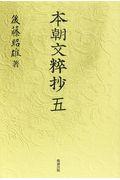 本朝文粋抄 五
後藤昭雄 著
勉誠出版